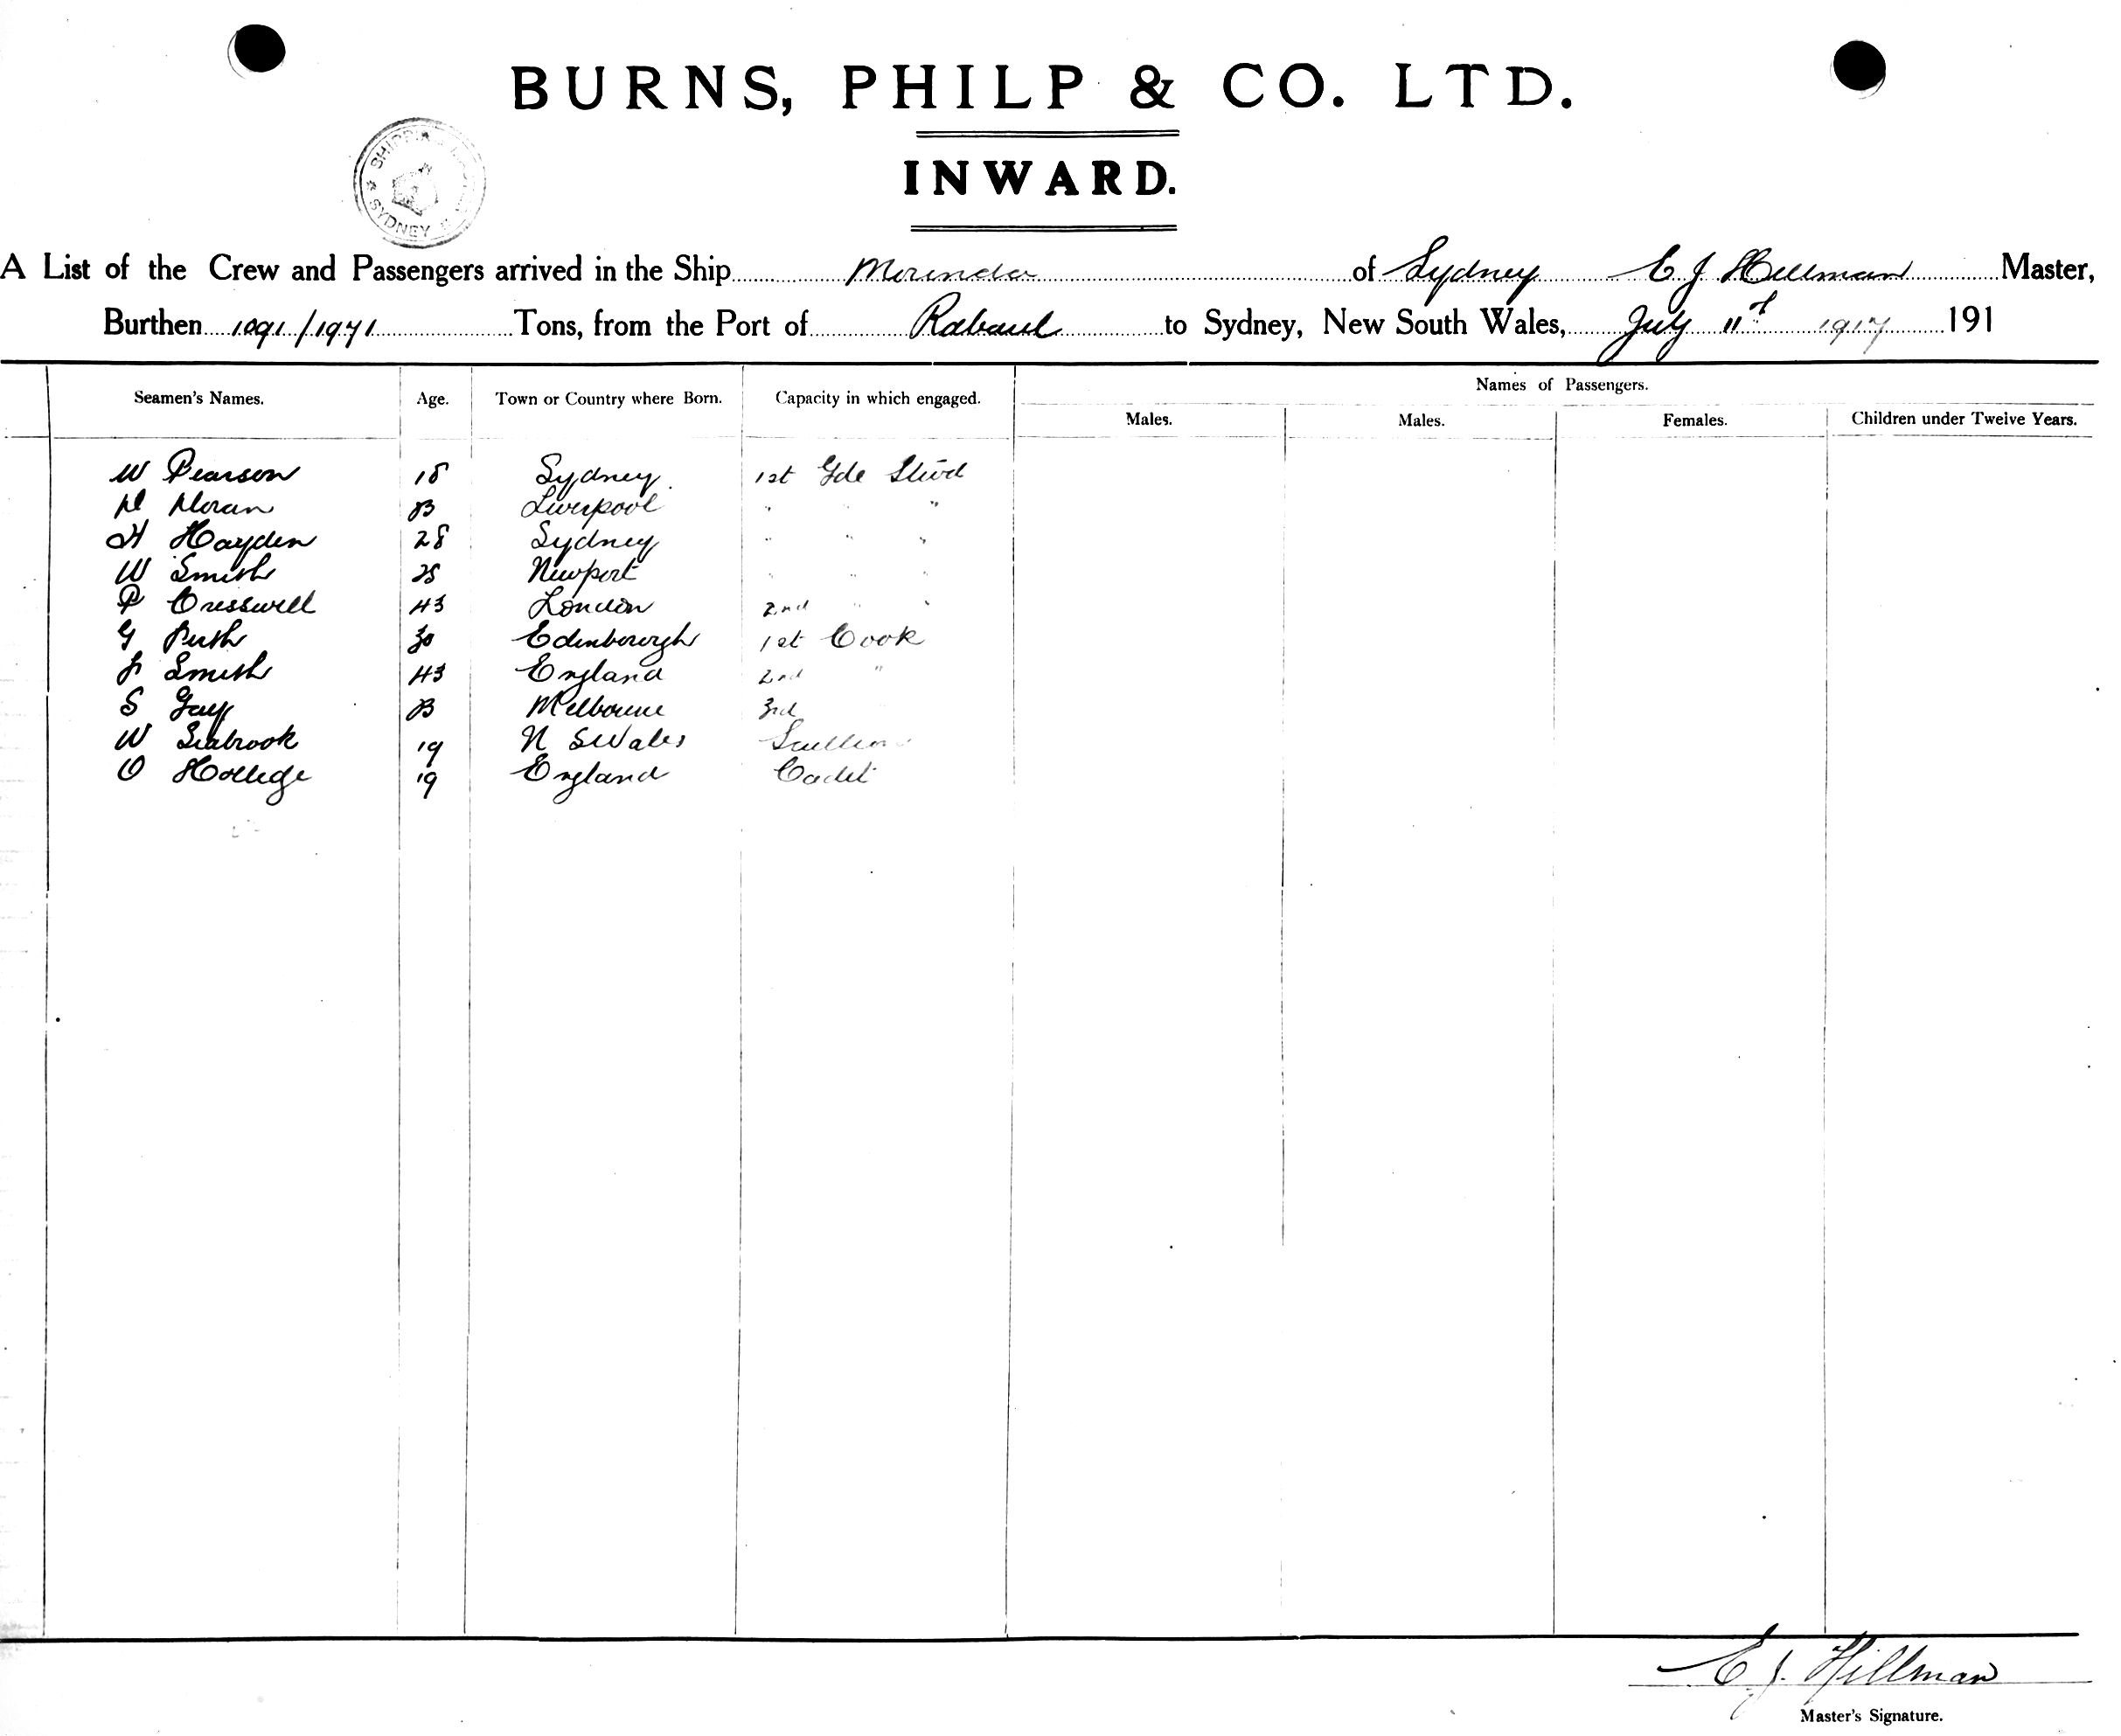 BURNS, PHILP & CO. LTD.
INWARD.
SHIPPING SYDNEY
A List of the Crew and Passengers arrived in the Ship Morinda of Sydney E J Hillman Master,
Burthen 1091/1971 Tons, from the Port of Rabaul to Sydney, New South Wales, July 11th 1917 191
Seamen's Names. Age. Town or Country where Born. Capacity in which engaged. Names of Passengers.
Males. Males. Females. Children under Twelve Years.
W Pearson 18 Sydney 1st Gde Stwd
Moran Liverpool " "
H Hayden 28 Sydney " " "
W Smith 25 Newport " " "
P Cresswell 43 London 2nd " "
G Perth 30 Edinborough 1st Cook
J Smith 43 England 2nd "
S Gay Melbourne 3rd
W Seabrook 19 N S Wales Scullion
O Hollege 19 England Cadet
E. J. Hillman
Master's Signature.